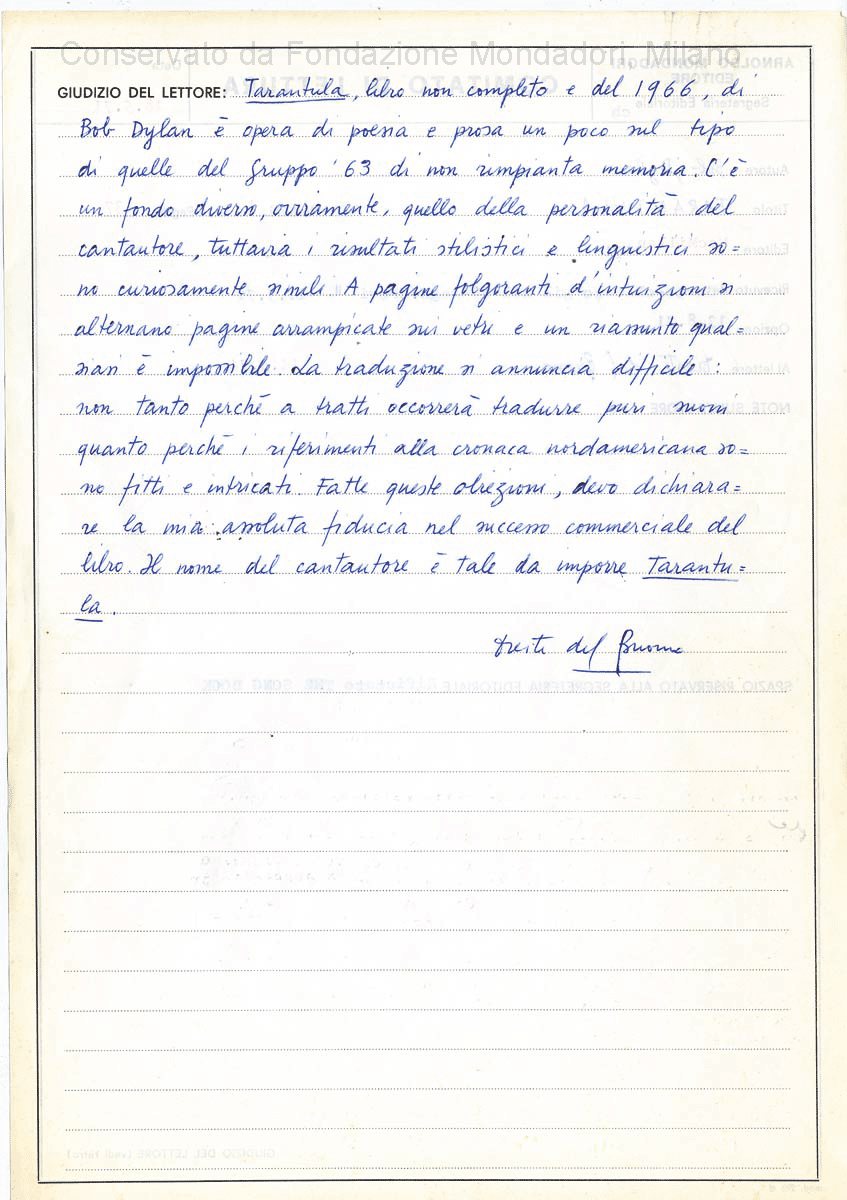 Conservato da Fondazione Mondadori, Milano
GIUDIZIO DEL LETTORE: Tarantula, libro non completo e del 1966, di
Bob Dylan è opera di poesia e prosa un poco sul tipo
di quelle del Gruppo '63 di non rimpianta memoria. C'è
un fondo diverso, ovviamente, quello della personalità del
cantautore, tuttavia i risultati stilistici e linguistici so=
no curiosamente simili. A pagine folgoranti d'intuizioni si
alternano pagine arrampicate sui vetri e un riassunto qual=
siasi è impossibile. La traduzione si annuncia difficile:
non tanto perché a tratti occorrerà tradurre puri suoni
quanto perché i riferimenti alla cronaca nordamericana so=
no fitti e intricati. Fatte queste obiezioni, devo dichiara=
re la mia assoluta fiducia nel successo commerciale del
libro. Il nome del cantautore è tale da imporre Tarantu=
la.
Oreste del Buono